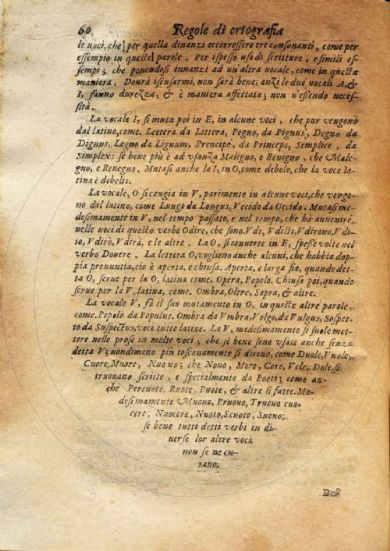 60 Regole di ortografia
le uoci, che per quella dinanzi occorressero tre consonanti, come per
essempio in queste parole. Per ispesso uso di scritture, e simili es-
sempi; che ponendosi innanzi ad un'altra uocale, come in questa
maniera, Dourà iscusarmi, non sarà bene, anzi le due uocali A, &
I, fanno durezza, & è maniera affettata; non u'essendo neces-
sità.
La uocale I, si muta poi in E, in alcune uoci, che pur vengono
dal latino, come, Lettera da Littera, Pegno, da Pignus, Degno da
Dignus, Legno da Lignum, Prencipe, da Princeps, Semplice, da
Simplex: se bene più è ad vsanza Maligno, e Benigno, che Male-
gno, e Benegno. Mutasi anche la I, in O, come debole, che la voce la
tina è debilis.
La vocale, O si cangia in V, parimente in alcune uoci, che vengo-
no dal latino, come Lungo da Longus, Vccido da Occido. Mutasi me-
desimamente in V, nel tempo passato, e nel tempo, che hà auuenire,
nelle uoci di questo verbo Odire, che sono, Vdì, Vdisti, Vdirono, Vdi-
io, Vdirò, Vdirà, e le altre. La O, si conuerte in E, spesse volte nel
verbo Douere. La lettera O, vogliono anche alcuni, che habbia dop-
pia pronuntia, cio è aperta, e chiusa. Aperta, e larga fia, quando det-
ta O, serue per la O, latina come. Opera, Popolo. Chiusa poi, quando
serue per la V, latina, come. Ombra, Oltre, Sopra, & altre.
La vocale V, fà il suo mutamento in O, in queste altre parole,
come. Popolo da Populus. Ombra da Vmbra, Volgo, da Vulgus, Sospet-
to da Suspectus, voci tutte latine. La V, medesimamente si suole met-
tere nelle prose in molte voci, che se bene sono vsate anche senza
detta V; nondimeno più toscanamente si dicono, come Duole, Vuole,
Cuore, Muoro, Nuouo; che Nouo, Moro, Core, Vole, Dole, si
truouano scritte, e specialmente da Poeti; come an-
che Percuote, Ruote, Puote, & altre sì fatte. Me-
desimamente Muouo, Pruouo, Truouo cuo-
cere, Nuocere, Nuoto, Scuoto, Suono;
se bene tutti detti verbi in di-
uerse lor altre voci
non se ne cu-
rano.